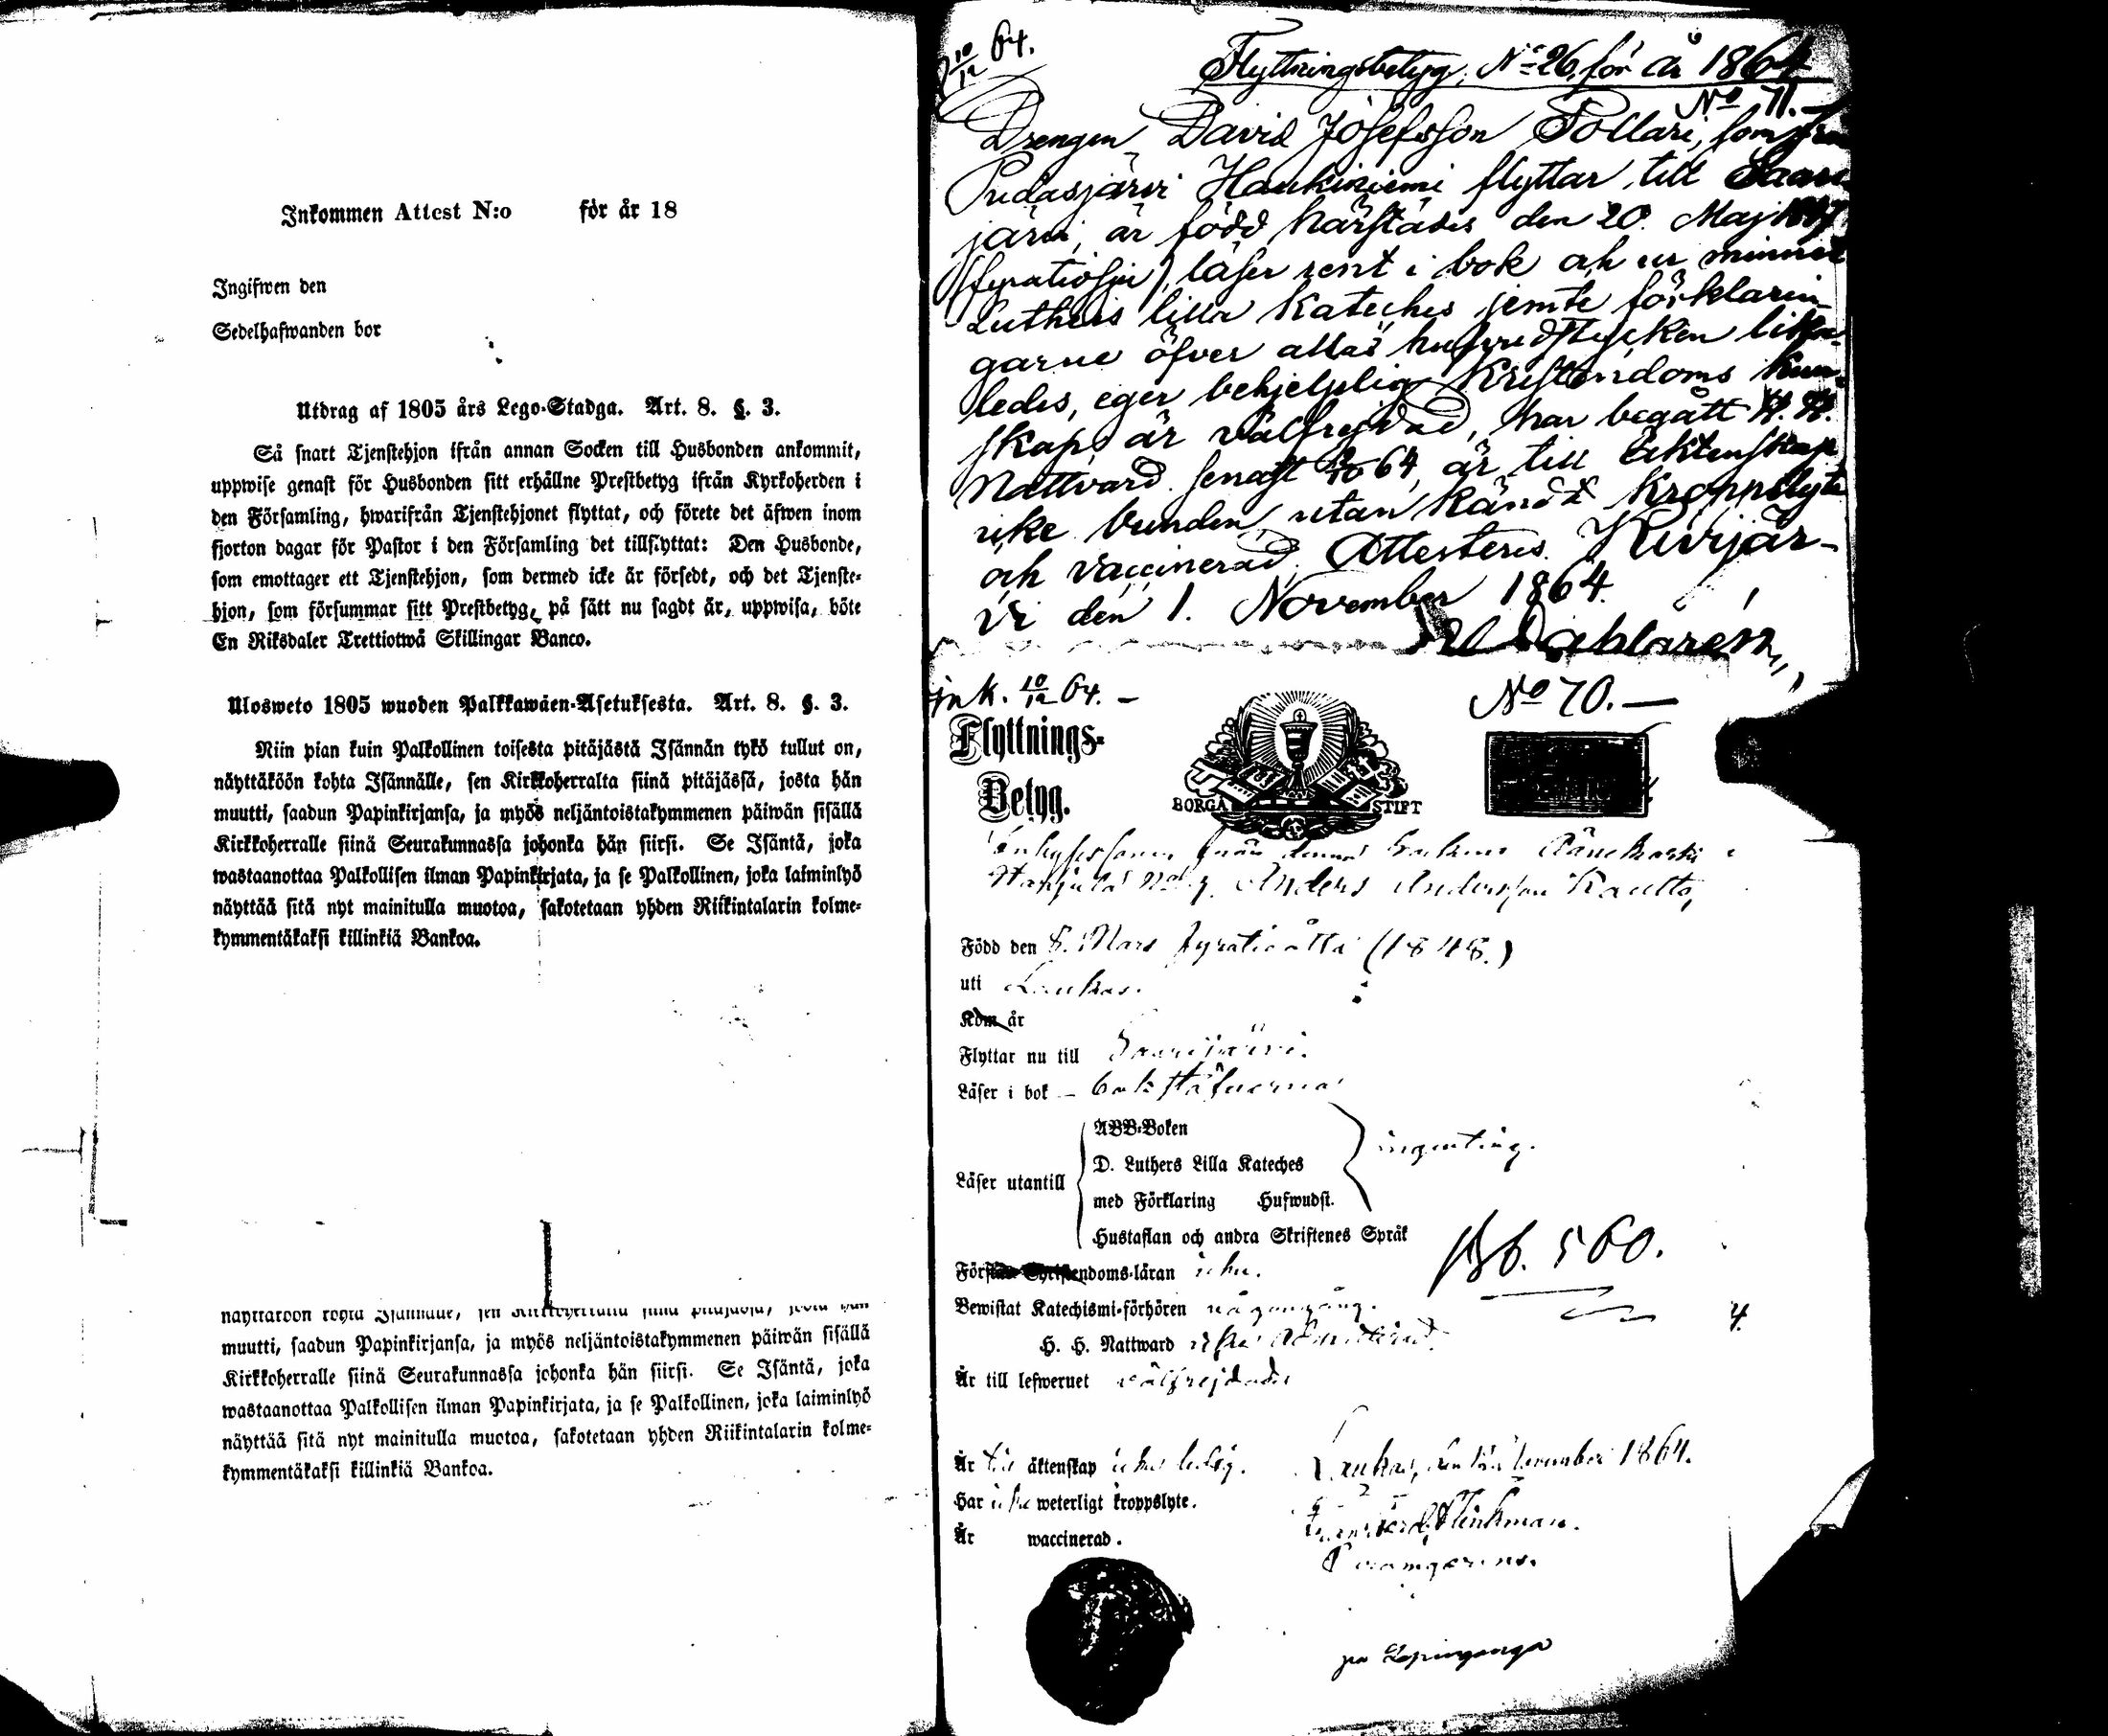 Inkommen Attest N:o för år 18
Ingifwen den
Sedelhafwanden bor
Utdrag af 1805 års Lego-Stadga. Art. 8. §. 3.
Så snart Tjenstehjon ifrån annan Socken till Husbonden ankommit,
uppwise genast för Husbonden sitt erhållne Prestbetyg ifrån Kyrkoherden i
den Församling, hwarifrån Tjenstehjonet flyttat, och förete det äfwen inom
fjorton dagar för Pastor i den Församling det tillflyttat: Den Husbonde,
som emottager ett Tjenstehjon, som dermed icke är försedt, och det Tjenste-
hjon, som försummar sitt Prestbetyg, på sätt nu sagdt är, uppwisa, böte
En Riksdaler Trettiotwå Skillingar Banco.
Ulosweto 1805 wuoden Palkkawäen-Asetuksesta. Art. 8. §. 3.
Niin pian kuin Palkollinen toisesta pitäjästä Isännän tykö tullut on,
näyttäköön kohta Isännälle, sen Kirkkoherralta siinä pitäjässä, josta hän
muutti, saadun Papinkirjansa, ja myös neljäntoistakymmenen päiwän sisällä
Kirkkoherralle siinä Seurakunnassa johonka hän siirsi. Se Isäntä, joka
wastaanottaa Palkollisen ilman Papinkirjata, ja se Palkollinen, joka laiminlyö
näyttää sitä nyt mainitulla muotoa, sakotetaan yhden Riikintalarin kolme-
kymmentäkaksi killinkiä Bankoa.
näyttäköön kohta Isännälle, sen Kirkkoherralta siinä pitäjässä, josta hän
muutti, saadun Papinkirjansa, ja myös neljäntoistakymmenen päiwän sisällä
Kirkkoherralle siinä Seurakunnassa johonka hän siirsi. Se Isäntä, joka
wastaanottaa Palkollisen ilman Papinkirjata, ja se Palkollinen, joka laiminlyö
näyttää sitä nyt mainitulla muotoa, sakotetaan yhden Riikintalarin kolme-
kymmentäkaksi killinkiä Bankoa.
10/12 64.
Flyttningsbetyg, No 26, för år 1864
No 71.
Drengen David Josefsson Pollari, som från
Pudasjärvi Haukiniemi flyttar till Saari-
järvi, är född härstädes den 20. Maj 1847
(fyratiosju), läser rent i bok och ur minnet
Luthers lilla Kateches jemte förklarin-
garne öfver allas hufvudstycken lika-
ledes, eger behjelplig Kristendoms kun-
skap, är välfrejdad, har begått H. H.
Nattvard senast 64, är till äktenskap
icke bunden, utan kändt kroppslyte
och vaccinerad. Attesteras. Kivijär-
vi den 1. November 1864.
ink. 10/12 64. —
No 70. —
Flyttnings-
Betyg.
BORGÅ STIFT
Anders Andersson Kautto,
Född den 8. Mars fyratioåtta (1848.)
uti Laukas.
Kom år
Flyttar nu till Saarijärvi.
Läser i bok – bokstäfverna
Läser utantill
ABB-Boken
D. Luthers Lilla Kateches
med Förklaring Hufwudst.
Hustaflan och andra Skriftenes Språk
ingenting.
Förstår Christendoms-läran icke.
Pb. 560.
Bewistat Katechismi-förhören någongång.
4.
H. H. Nattward icke admitterad.
Är till lefwernet välfrejdad
Är till äktenskap icke ledig.
Laukas, den November 1864.
Har icke weterligt kroppslyte.
Flinkman.
Är waccinerad.